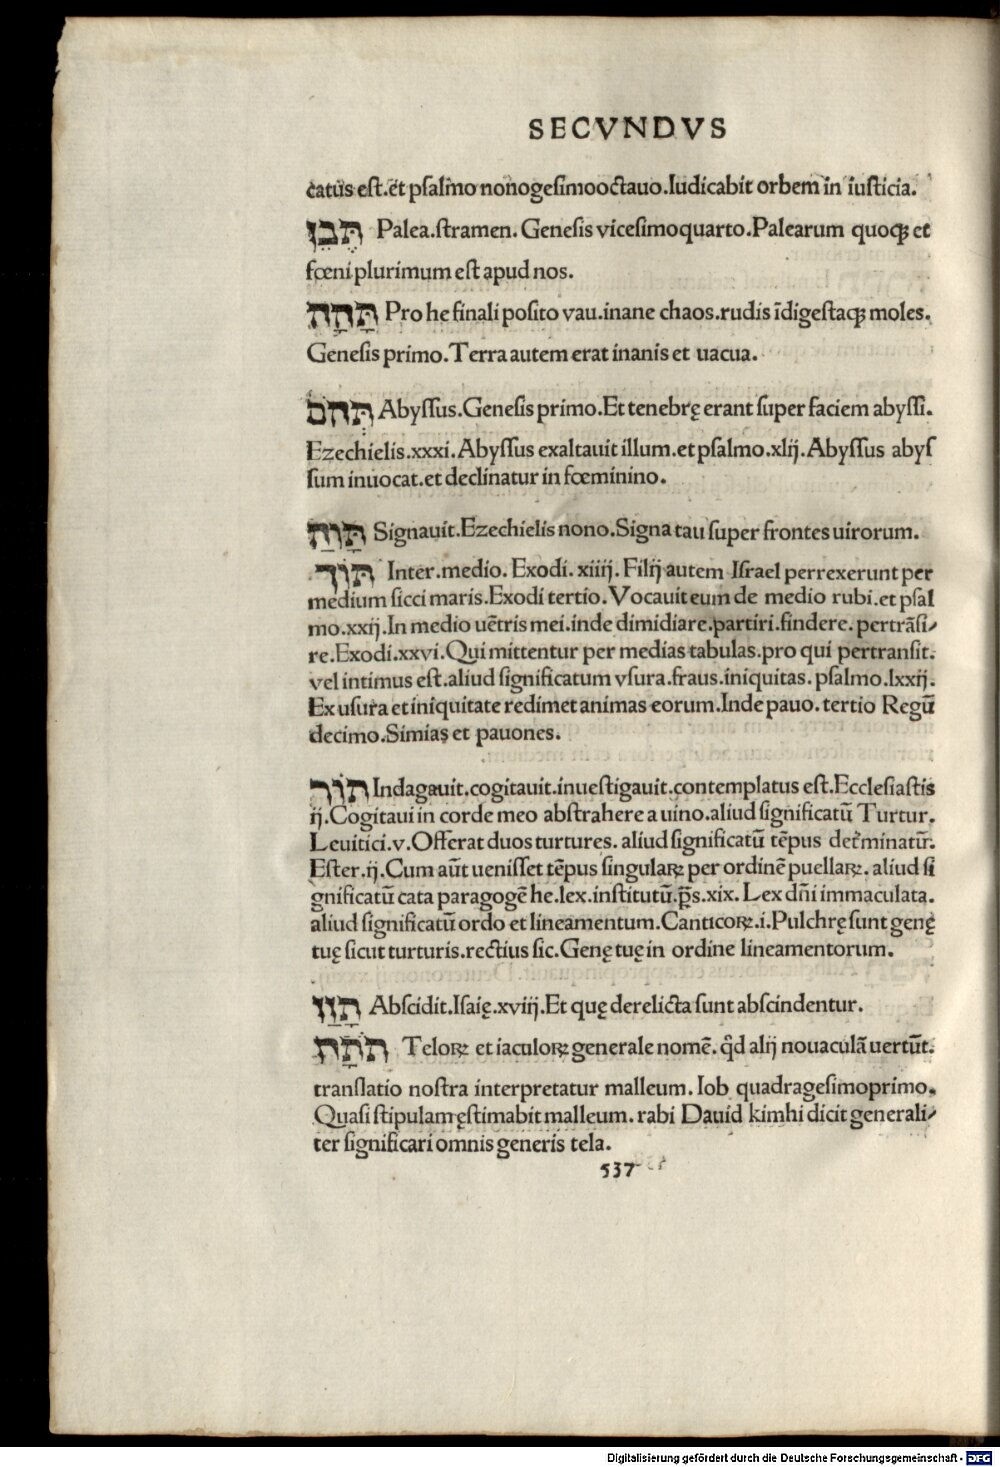 SECVNDVS
catus est. et psalmo nonogesimooctauo. Iudicabit orbem in iusticia.
תֶּבֶן Palea. stramen. Genesis vicesimoquarto. Palearum quoqꝫ et
fœni plurimum est apud nos.
תָּהָה Pro he finali posito vau. inane chaos. rudis īdigestaqꝫ moles.
Genesis primo. Terra autem erat inanis et uacua.
תְּהֹם Abyssus. Genesis primo. Et tenebrę erant super faciem abyssi.
Ezechielis. xxxi. Abyssus exaltauit illum. et psalmo. xlij. Abyssus abys
sum inuocat. et declinatur in fœminino.
תָּוָה Signauit. Ezechielis nono. Signa tau super frontes uirorum.
תָּוֶךְ Inter. medio. Exodi. xiiij. Filij autem Israel perrexerunt per
medium sicci maris. Exodi tertio. Vocauit eum de medio rubi. et psal
mo. xxij. In medio uētris mei. inde dimidiare. partiri. findere. pertrāsi⸗
re. Exodi. xxvi. Qui mittentur per medias tabulas. pro qui pertransit.
vel intimus est. aliud significatum vsura. fraus. iniquitas. psalmo. lxxij.
Ex usura et iniquitate redimet animas eorum. Inde pauo. tertio Regū
decimo. Simias et pauones.
תּוֹר Indagauit. cogitauit. inuestigauit. contemplatus est. Ecclesiastis
ij. Cogitaui in corde meo abstrahere a uino. aliud significatū Turtur.
Leuitici. v. Offerat duos turtures. aliud significatū tēpus det̄minatū.
Ester. ij. Cum aūt uenisset tēpus singulaꝝ per ordinē puellaꝝ. aliud si
gnificatū cata paragogē he. lex. institutū. p̄s. xix. Lex dn̄i immaculata.
aliud significatū ordo et lineamentum. Canticoꝝ. i. Pulchrę sunt genę
tuę sicut turturis. rectius sic. Genę tuę in ordine lineamentorum.
תָּזַז Abscidit. Isaię. xviij. Et quę derelicta sunt abscindentur.
תֹּתָח Teloꝝ et iaculoꝝ generale nomē. qd̄ alij nouaculā uertūt.
translatio nostra interpretatur malleum. Iob quadragesimoprimo.
Quasi stipulam ęstimabit malleum. rabi Dauid kimhi dicit generali⸗
ter significari omnis generis tela.
537
Digitalisierung gefördert durch die Deutsche Forschungsgemeinschaft - DFG